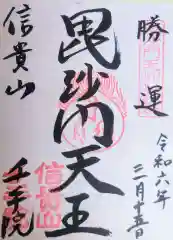 勝運
令和六年
三月十五日
毘沙門天王
信貴山
千手院
信貴山